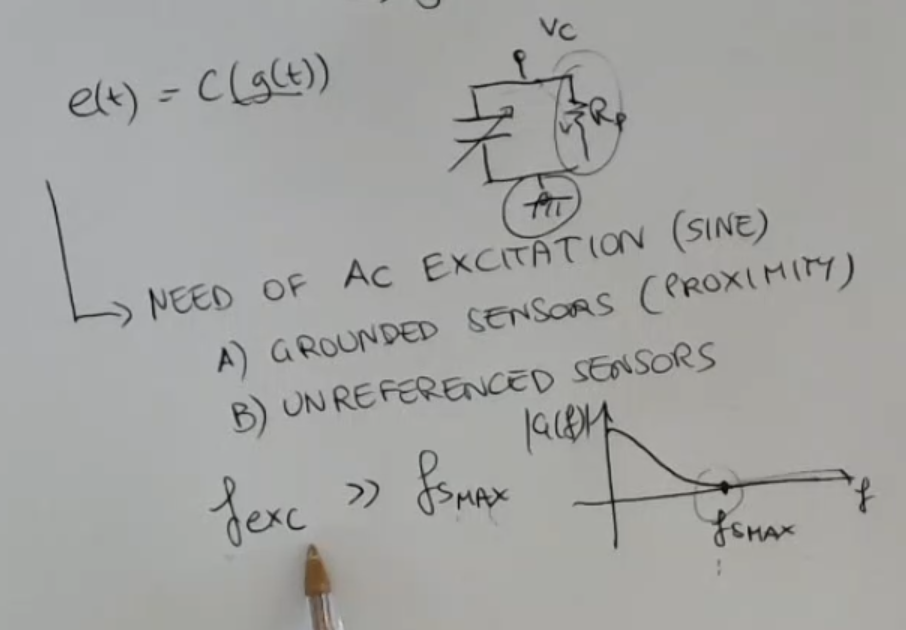 Vc
e(t) = C(g(t))
Rp
→ NEED OF AC EXCITATION (SINE)
A) GROUNDED SENSORS (PROXIMITY)
B) UNREFERENCED SENSORS
|G(f)|
fexc >> fSMAX
f
fSMAX